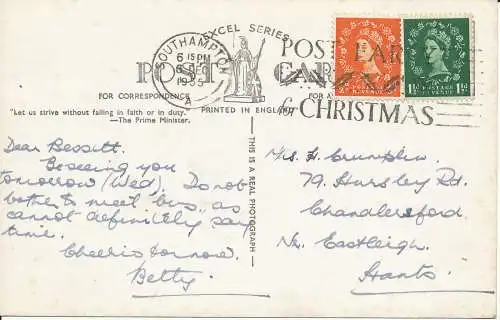 EXCEL SERIES
SOUTHAMPTON
6 15PM
6 DEC
1955
A
POST EARLY
for CHRISTMAS
POSTAGE
REVENUE
1½D
1½D
POST CARD
FOR CORRESPONDENCE
PRINTED IN ENGLAND
FOR A
"Let us strive without failing in faith or in duty."
—The Prime Minister.
THIS IS A REAL PHOTOGRAPH
Dear Bessitt.
Be seeing you
tomorrow (Wed). Do not
bother to meet bus, as
cannot definitely say
time.
Cheerio for now.
Betty.
H. Crumplin,
79, Hursley Rd.
Chandlersford.
Nr. Eastleigh.
Hants.